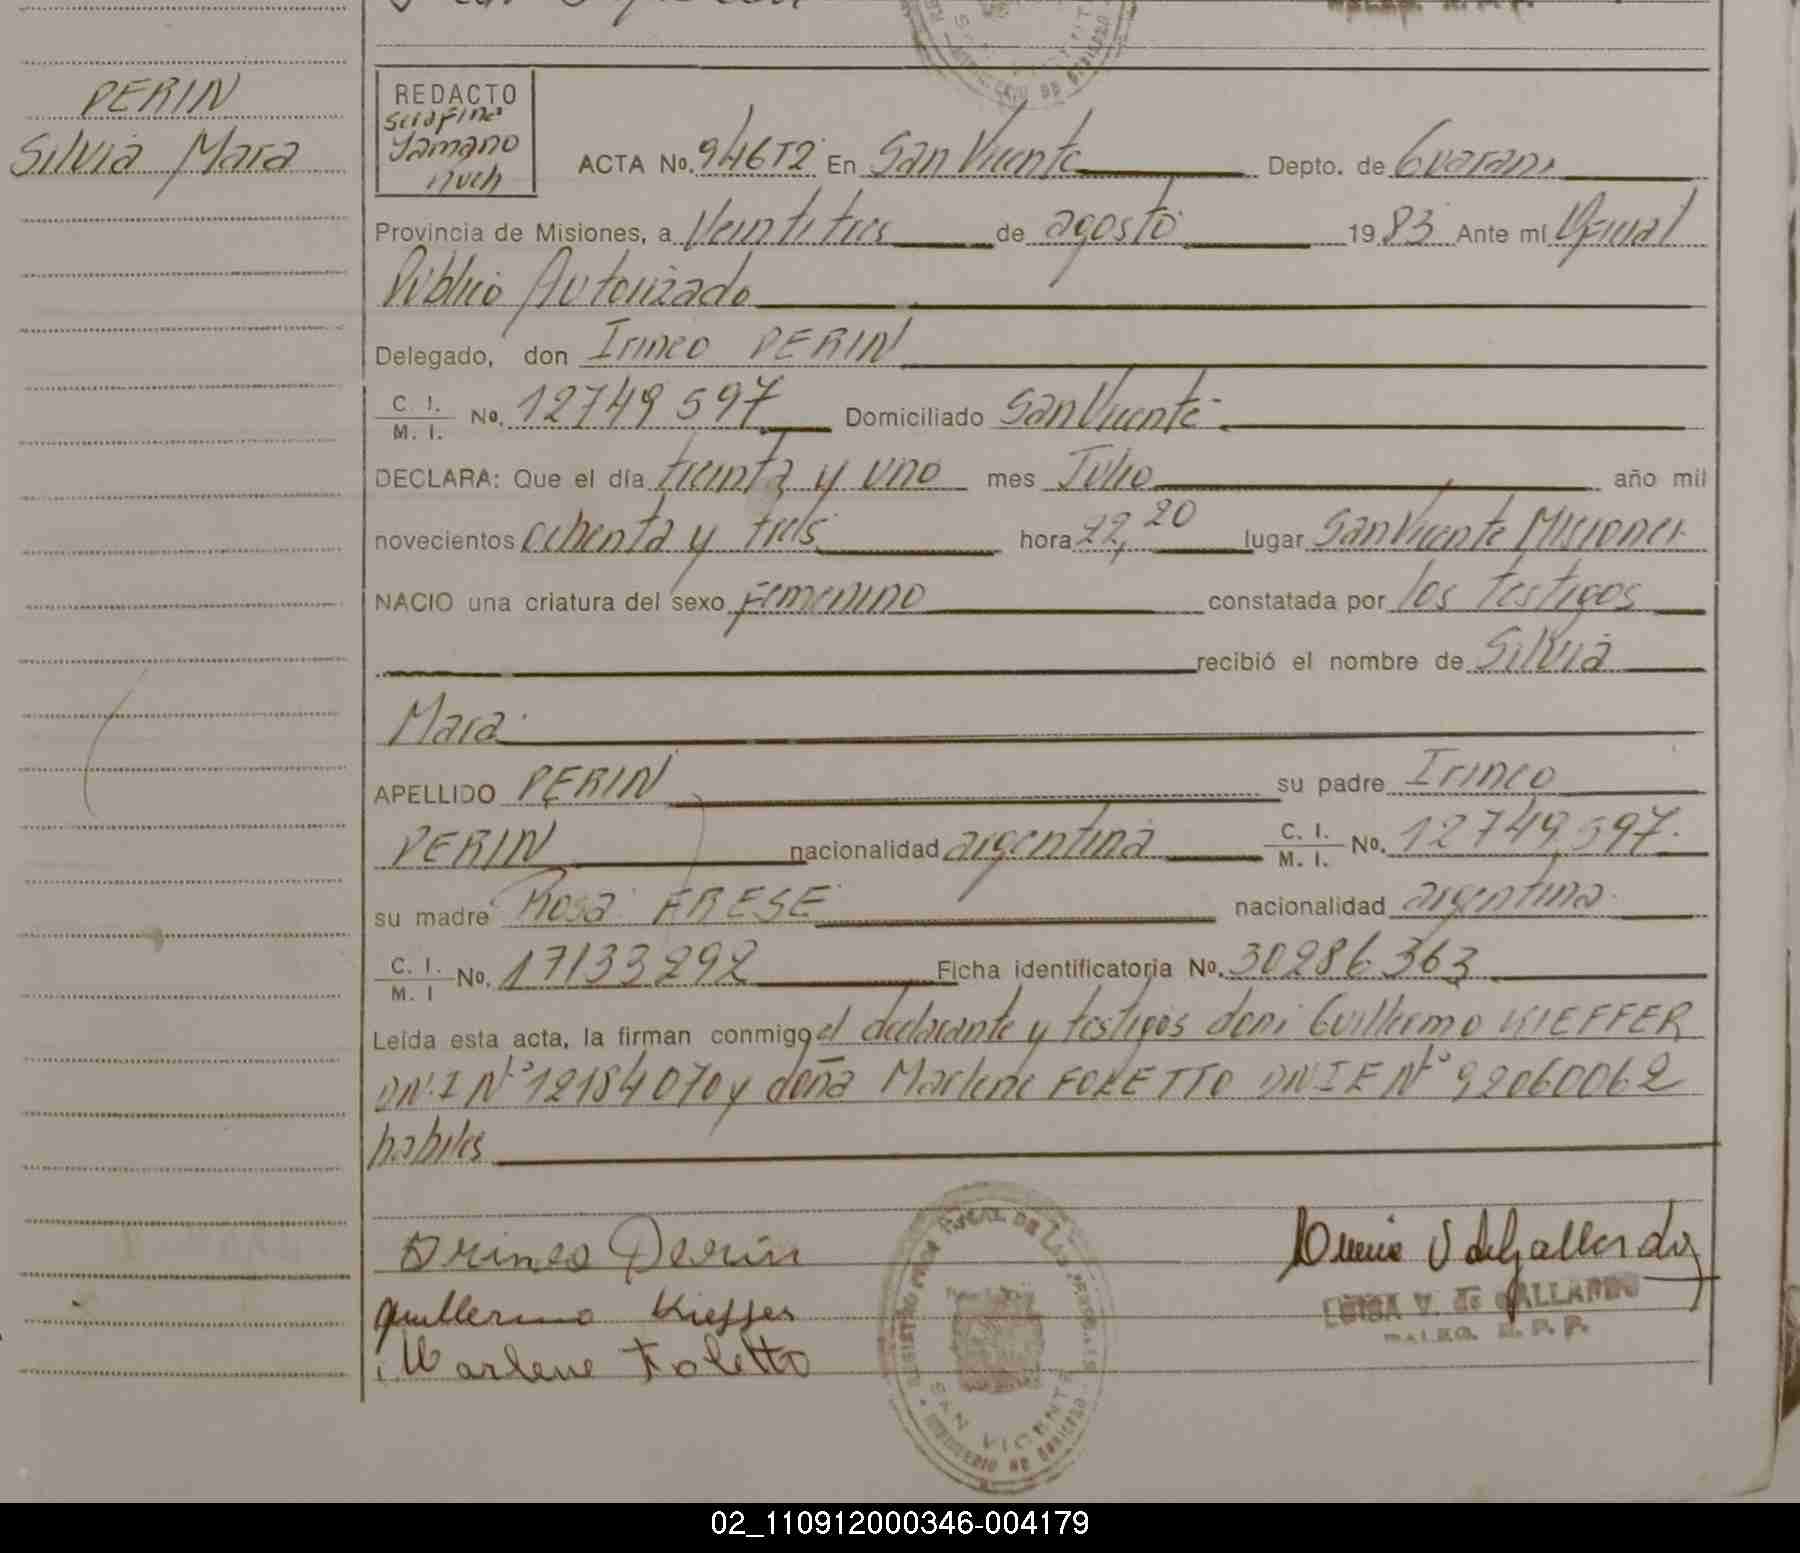 PERIN
Silvia Mara
REDACTO
Serafina
Yamano
ACTA No. 946T2 En San Vicente Depto. de Guarani
Provincia de Misiones, a Veintitres de agosto 1983 Ante mí Oficial
Público Autorizado
Delegado, don Irineo PERIN
C. I.
M. I. No. 12749597 Domiciliado San Vicente
DECLARA: Que el día treinta y uno mes Julio año mil
novecientos ochenta y tres hora 22,20 lugar San Vicente Misiones
NACIO una criatura del sexo Femenino constatada por los testigos
recibió el nombre de Silvia
Mara
APELLIDO PERIN su padre Irineo
PERIN nacionalidad argentina C. I.
M. I. No. 12749597.
su madre Rosa FRESE nacionalidad argentina
C. I.
M. I No. 17133292 Ficha identificatoria No. 30286363
Leída esta acta, la firman conmigo el declarante y testigos don: Guillermo KIEFFER
DN.I N° 12184070 y doña Marlene FOLETTO DNIE N° 92060062
habiles
Irineo Perin
Guillermo Kieffer
Marlene Foletto
V de Gallardo
LUISA V. de GALLARDO
SAN VICENTE
02_110912000346-004179